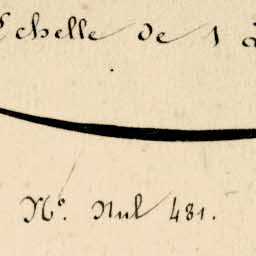 Echelle de 1 à
Nº. Nul 481.